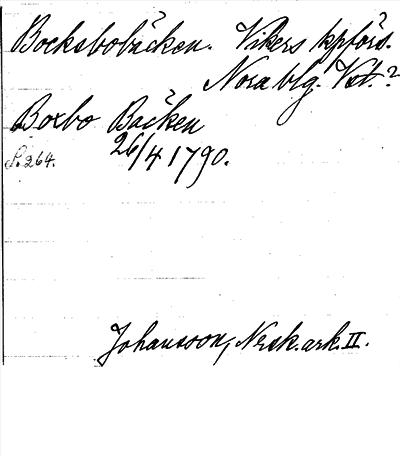 Bocksbobäcken. Vikers kpförs.
Nora blg. Vst.?
Boxbo Bäcken
S. 264. 26/4 1790.
Johansson, Norsk. ark. II.